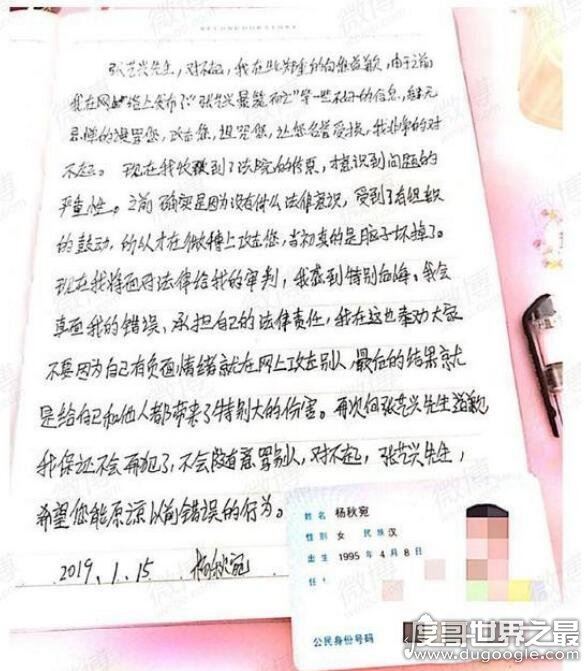 张艺兴先生，对不起，我在此郑重的向您道歉，由于之前
我在网络上发布了"张艺兴
等一些不好的信息，
您，攻击您，诅咒您，让您名誉受损，我非常的对
不起。现在我收到了法院的传票，才意识到问题的
严重性。之前确实是因为没有什么法律意识，受到了有组织
的鼓动，所以才在微博上攻击您，当初真的是脑子坏掉了。
现在我将面对法律给我的审判，我感到特别后悔。我会
直面我的错误，承担自己的法律责任，我在这也奉劝大家
不要因为自己有负面情绪就在网上攻击别人，最后的结果就
是给自己和他人都带来了特别大的伤害。再次向张艺兴先生道歉
我保证不会再犯了，不会随意骂别人，对不起，张艺兴先生，
希望您能原谅以前错误的行为。
2019.1.15 杨秋宛
姓名 杨秋宛
性别 女 民族 汉
出生 1995 年 4 月 8 日
住
公民身份号码
度哥世界之最
www.dugoogle.com
微博